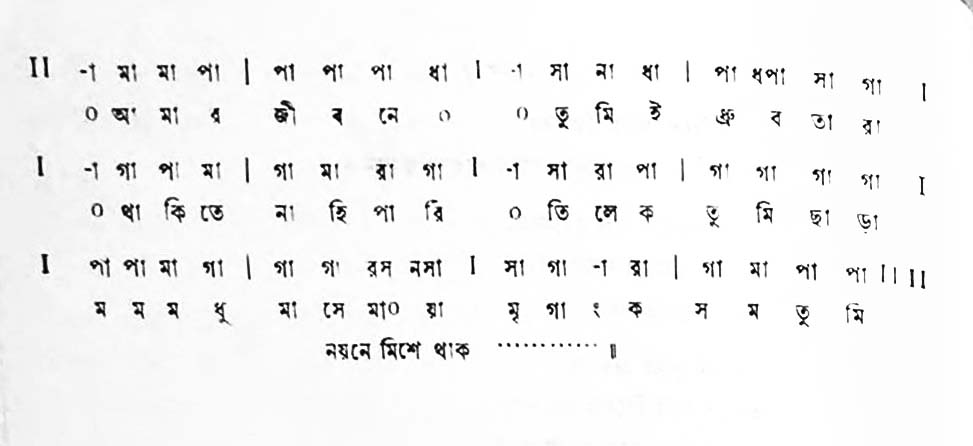 II -া মা মা পা | পা পা পা ধা I -া সা না ধা | পা ধপা মা গা I
০ আ মা র জী ব নে ০ ০ তু মি ই ধ্রু ব তা রা
I -া গা পা মা | গা মা রা গা I -া সা রা পা | গা গা গা গা I
০ থা কি তে না হি পা রি ০ তি লে ক তু মি ছা ড়া
I পা পা মা গা | গা গা রস নসা I সা গা -া রা | গা মা পা পা II II
ম ম ম ধু মা সে মা০ য়া মৃ গা ং ক স ম তু মি
নয়নে মিশে থাক ············ ॥